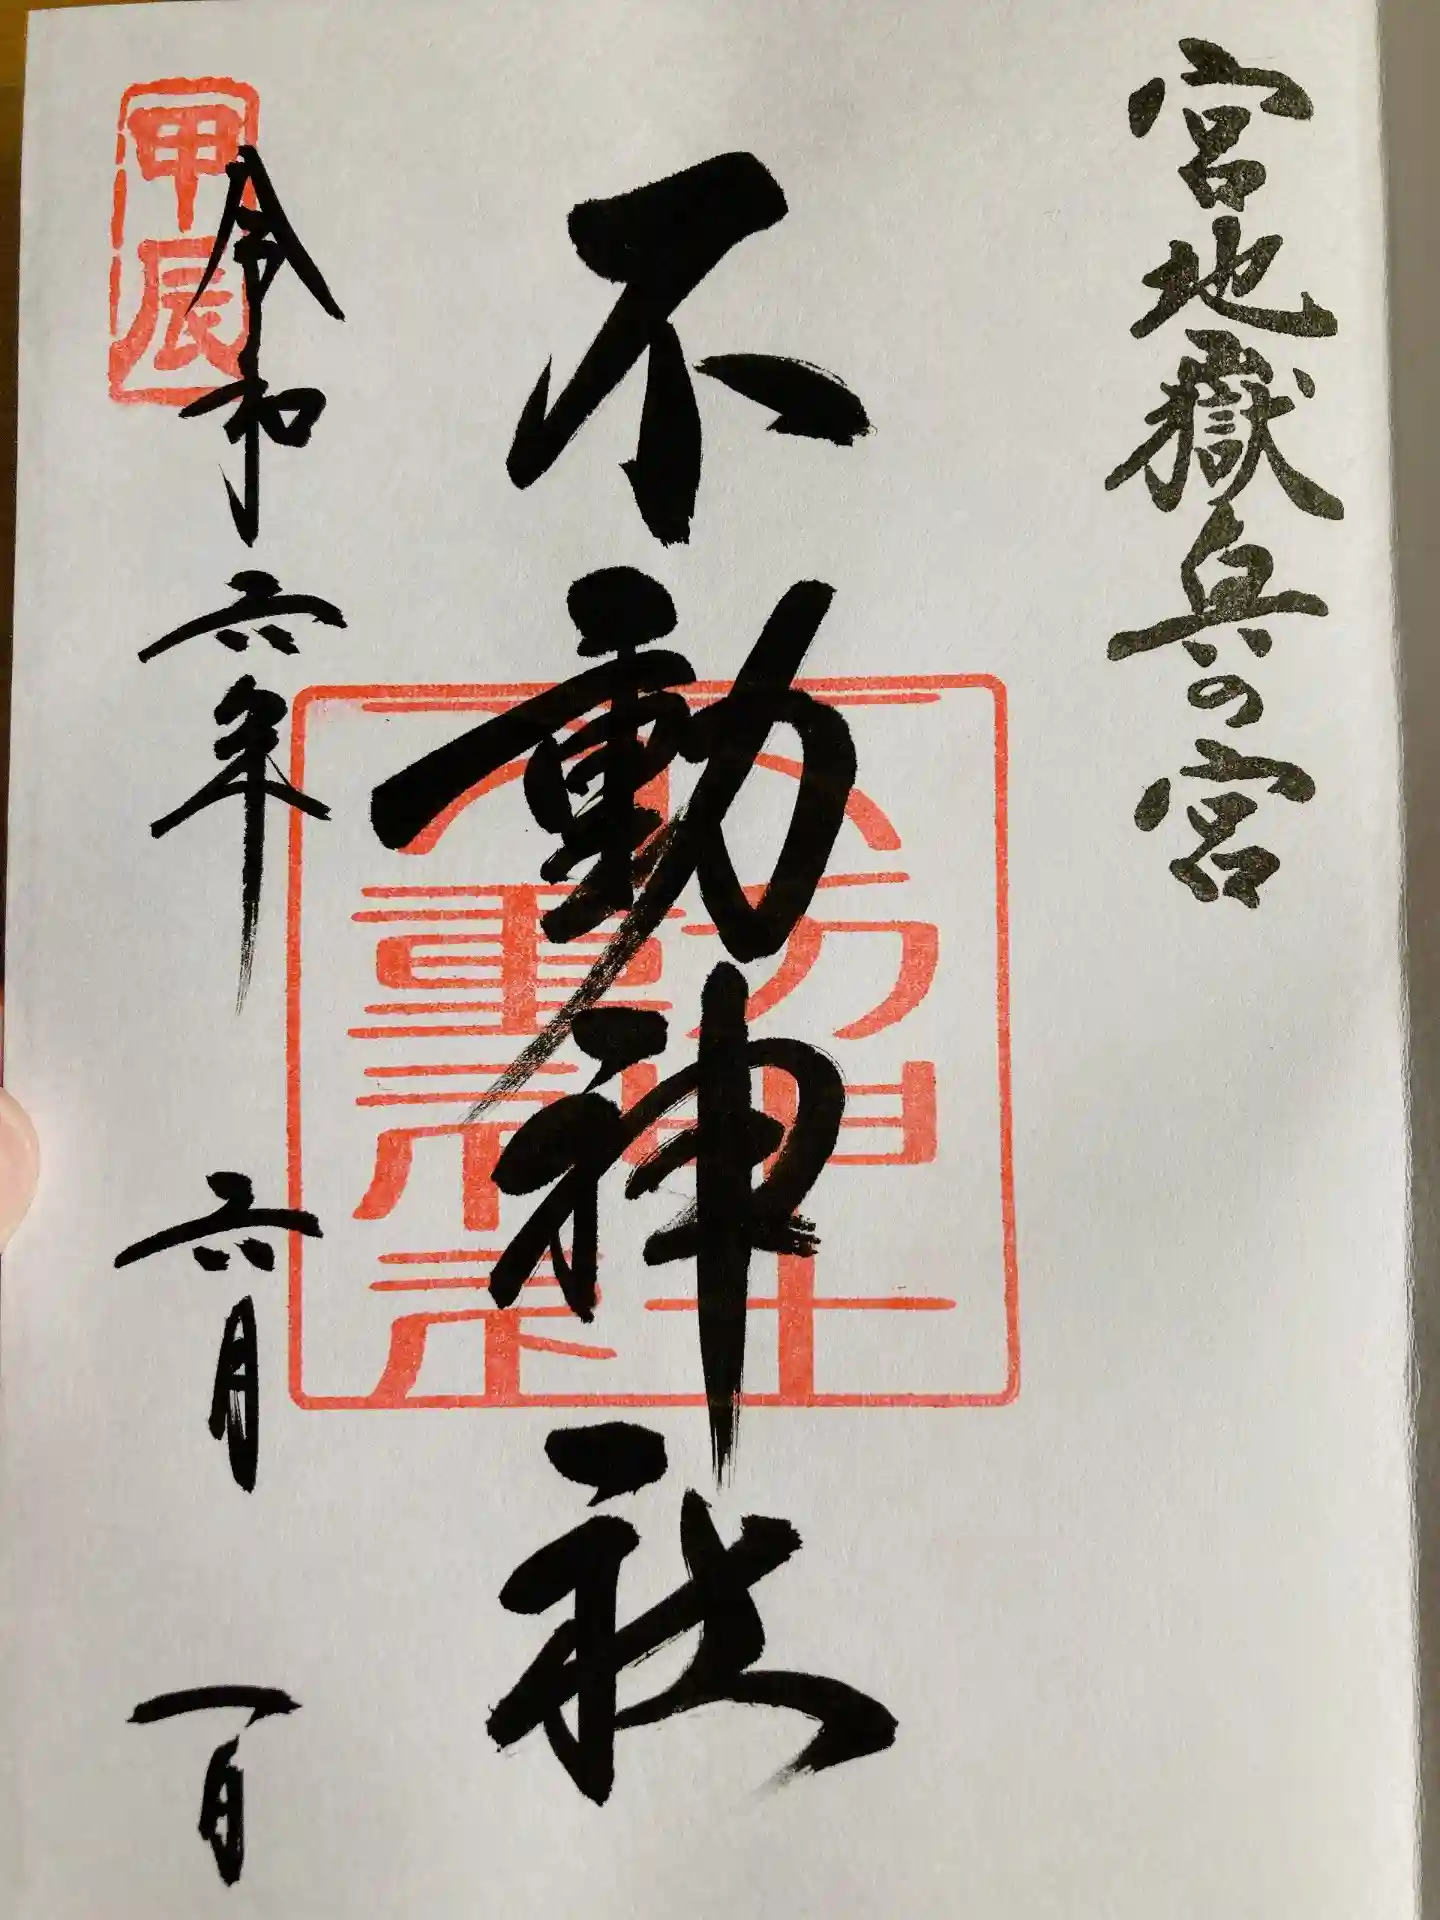 宮地嶽兵の宮
不動神社
不動神社
甲辰
令和六年 六月 一日